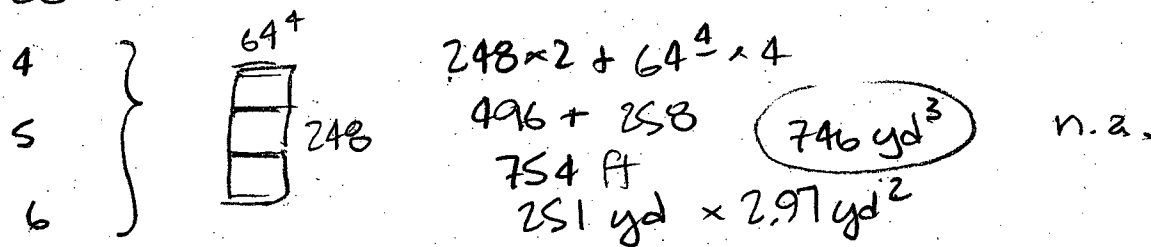 4
5
6
64⁴
248
248 × 2 + 64⁴ × 4
496 + 258
754 ft
251 yd × 2.97 yd²
746 yd³
n.a.